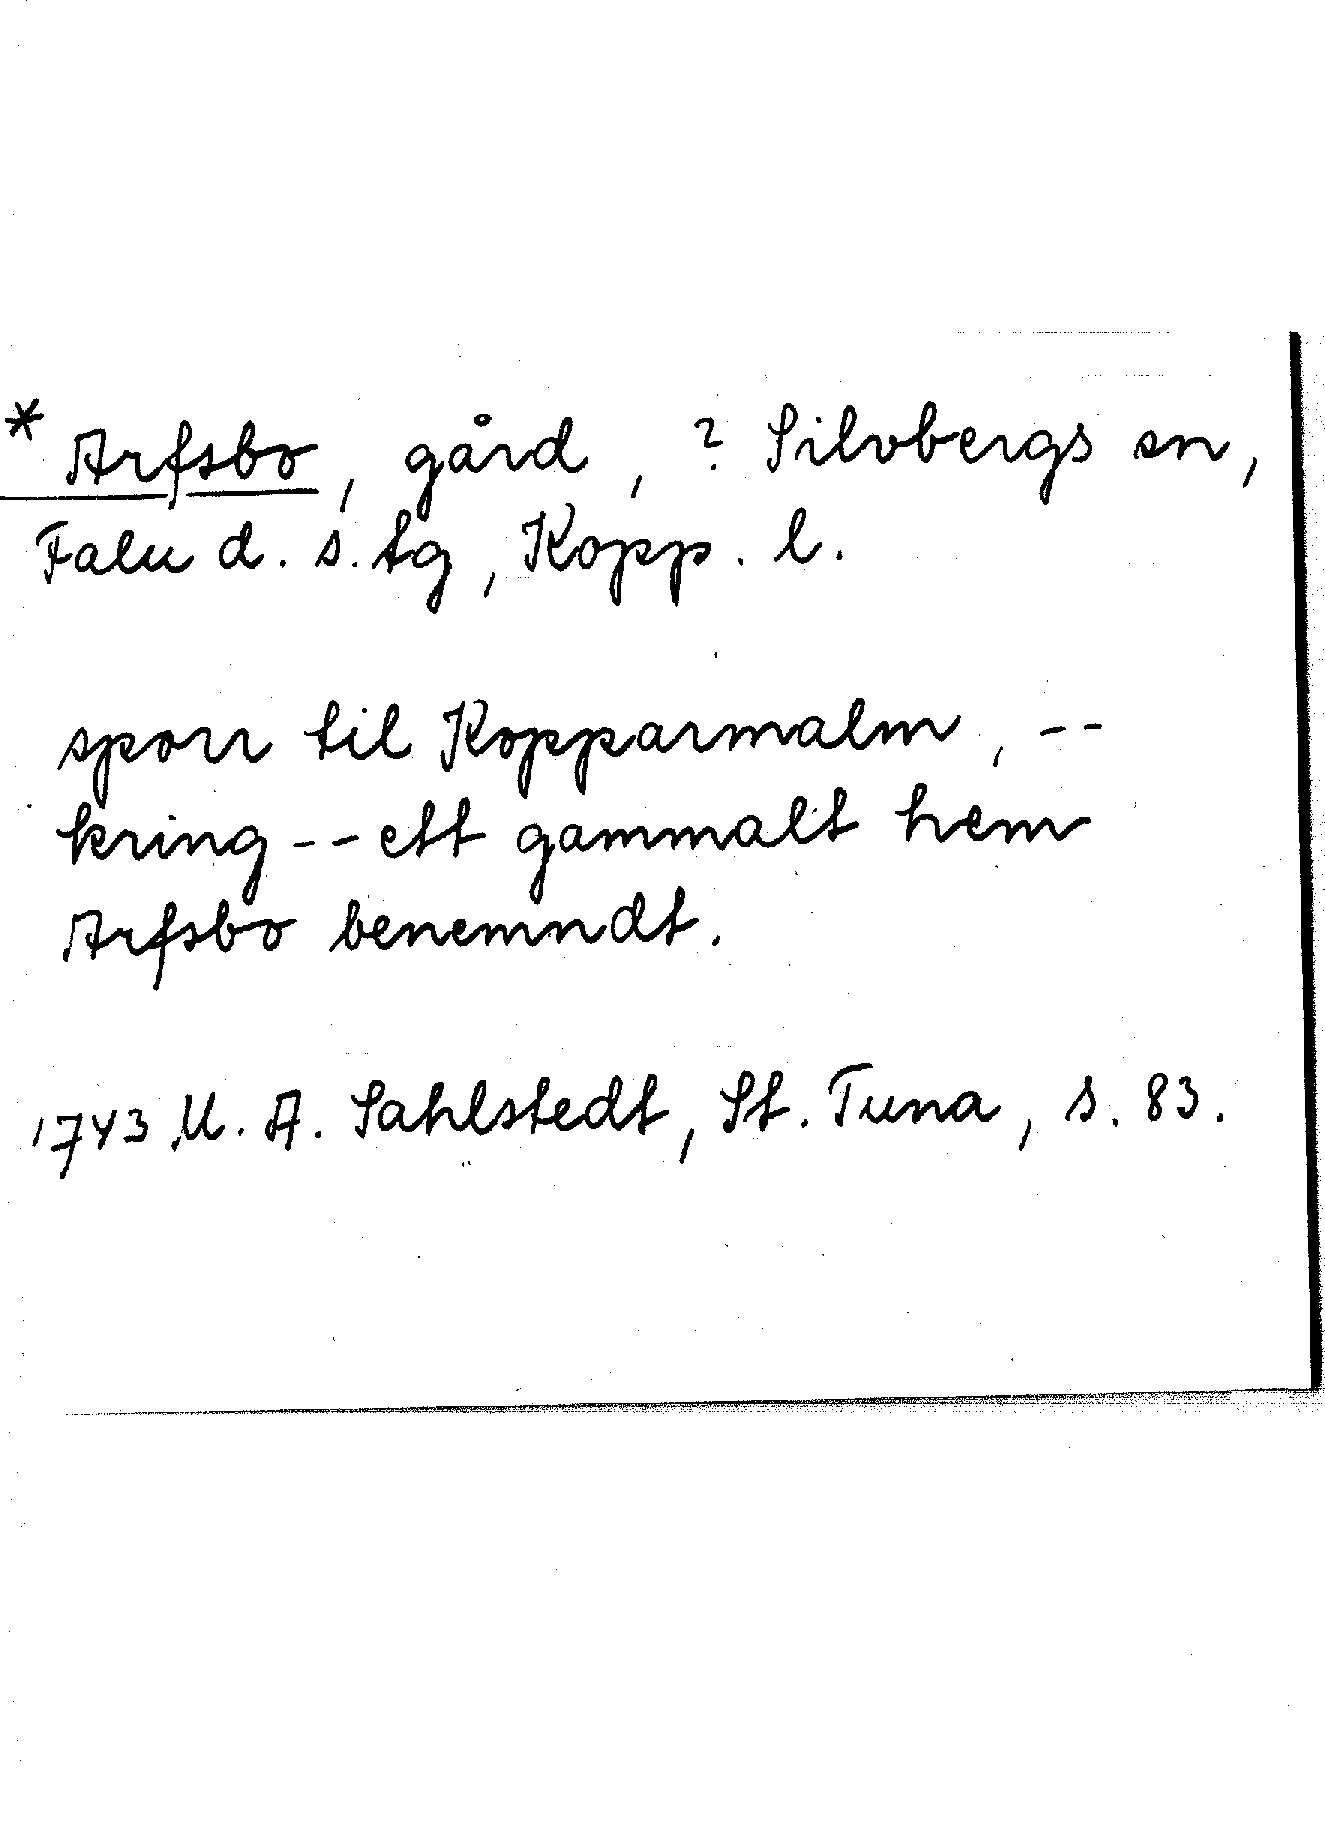 * Arfsbo, gård, ? Silvbergs sn,
Falu d. s. tg, Kopp. l.
sporr til Kopparmalm, --
kring -- ett gammalt hem
Arfsbo benemndt.
1743 U. A. Sahlstedt, St. Tuna, s. 83.